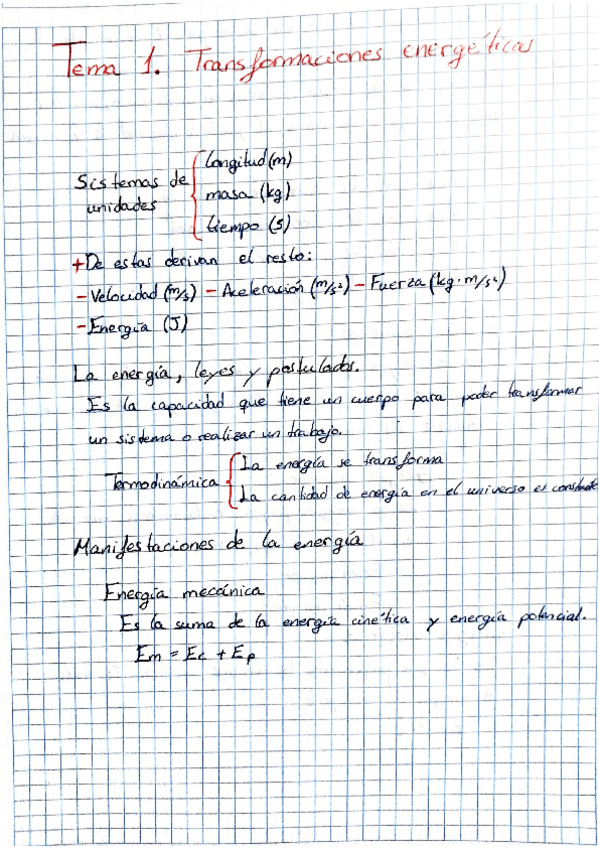 Tema 1. Transformaciones energéticas
Sistemas de unidades
longitud (m)
masa (kg)
tiempo (s)
+ De estas derivan el resto:
- Velocidad (m/s) - Aceleración (m/s²) - Fuerza (kg·m/s²)
- Energía (J)
La energía, leyes y postulados.
Es la capacidad que tiene un cuerpo para poder transformar
un sistema o realizar un trabajo.
Termodinámica
La energía se transforma
La cantidad de energía en el universo es constante
Manifestaciones de la energía
Energía mecánica
Es la suma de la energía cinética y energía potencial.
Em = Ec + Ep